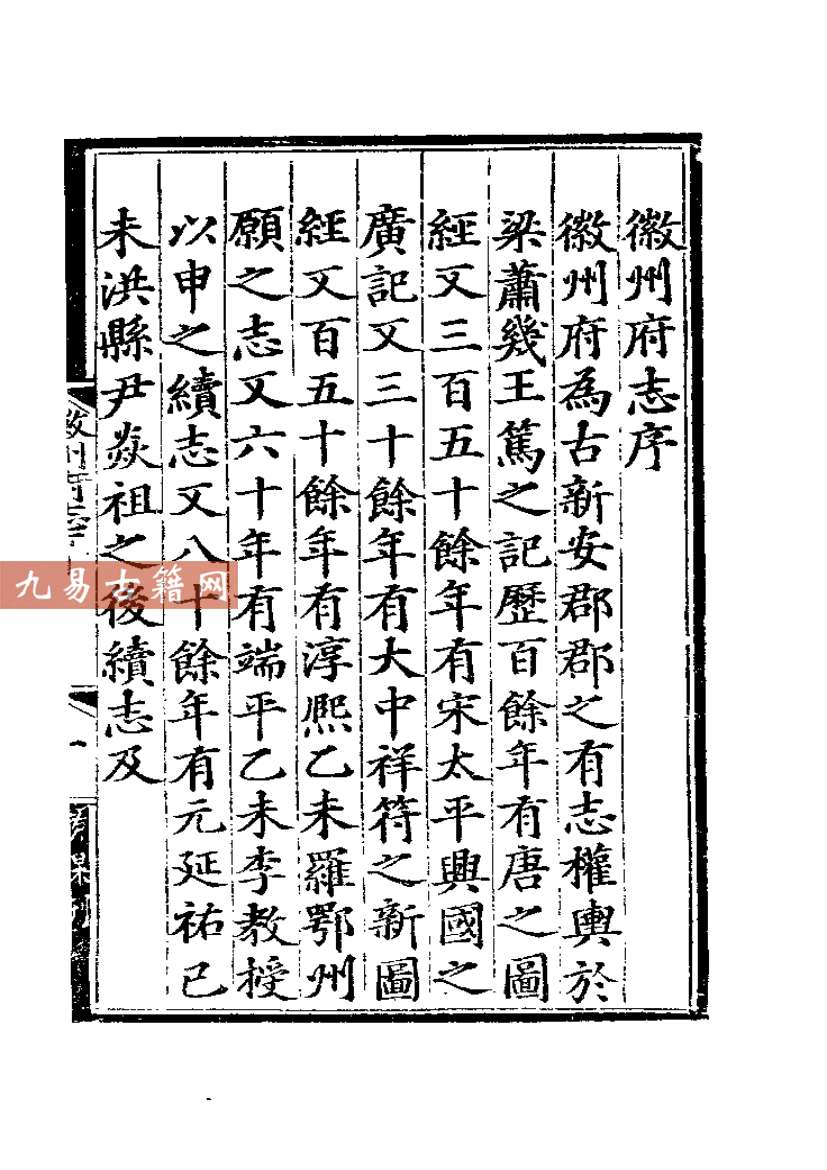 徽州府志序
徽州府為古新安郡郡之有志權輿於
梁蕭幾王篤之記歷百餘年有唐之圖
經又三百五十餘年有宋太平興國之
廣記又三十餘年有大中祥符之新圖
經又百五十餘年有淳熈乙未羅鄂州
願之志又六十年有端平乙未李教授
以申之續志又八十餘年有元延祐己
未洪縣尹焱祖之後續志及
九易古籍网